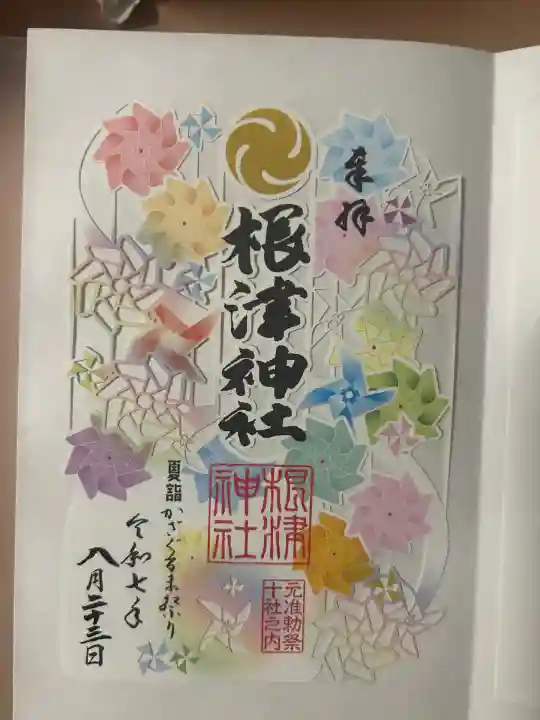 奉拝
根津神社
根津神社
元准勅祭
十社之内
夏詣
かざぐるま祭り
令和七年
八月二十三日